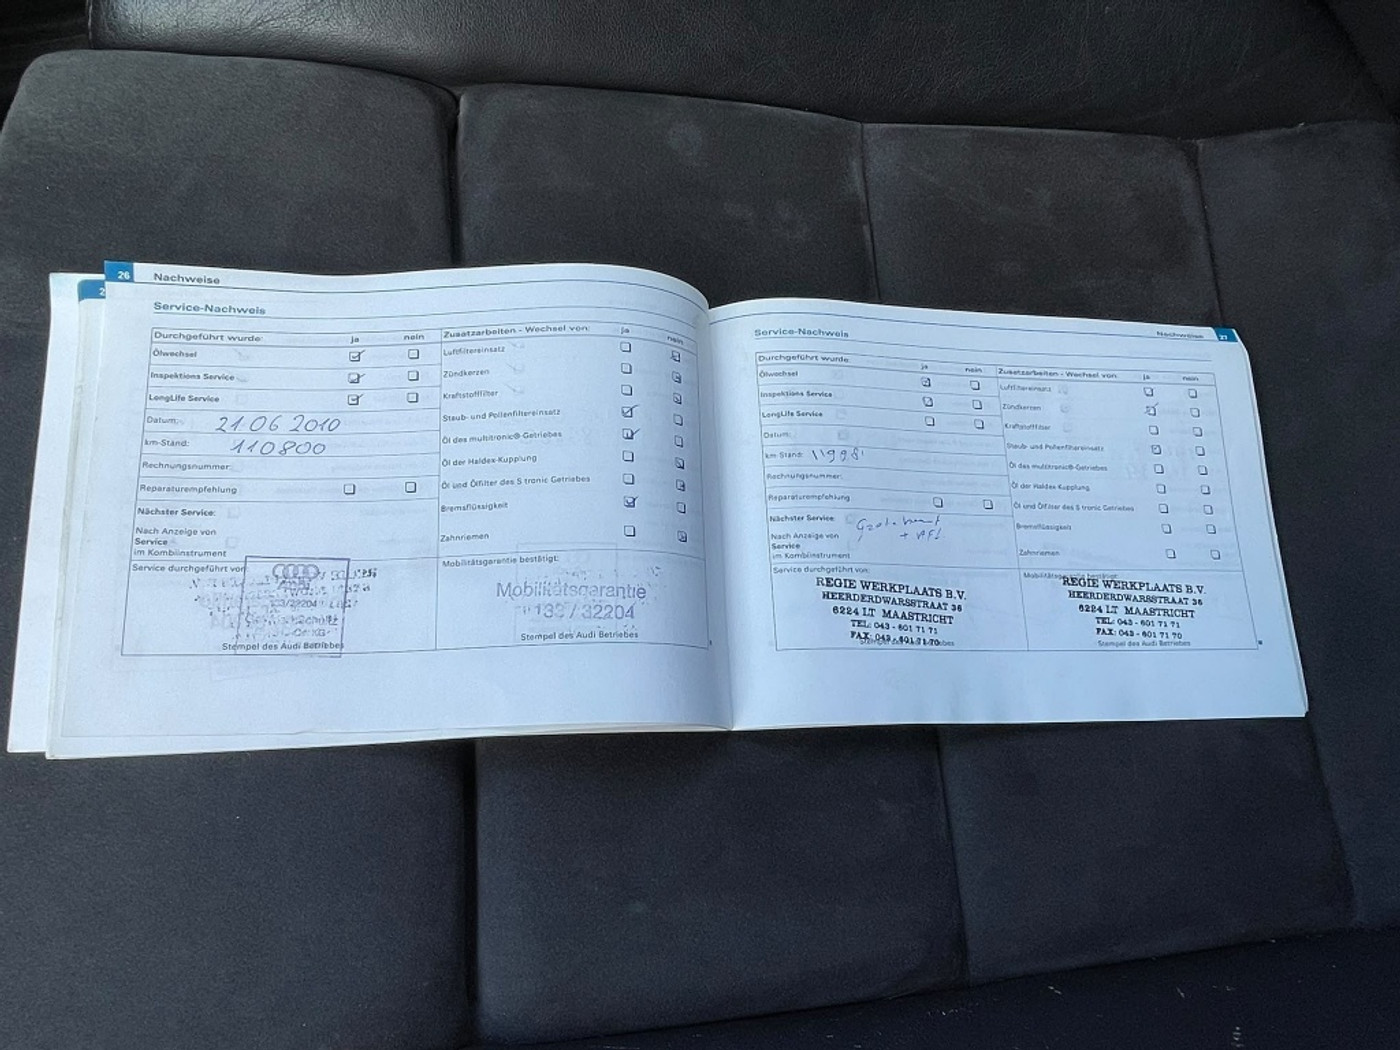 26 Nachweise
Service-Nachweis
Durchgeführt wurde: ja nein
Ölwechsel
Inspektions Service
LongLife Service
Datum: 21.06.2010
km-Stand: 110800
Rechnungsnummer:
Reparaturempfehlung
Nächster Service:
Nach Anzeige von
Service
im Kombiinstrument
Zusatzarbeiten - Wechsel von: ja nein
Luftfiltereinsatz
Zündkerzen
Kraftstofffilter
Staub- und Pollenfiltereinsatz
Öl des multitronic®-Getriebes
Öl der Haldex-Kupplung
Öl und Ölfilter des S tronic Getriebes
Bremsflüssigkeit
Zahnriemen
Service durchgeführt von:
Stempel des Audi Betriebes
Mobilitätsgarantie bestätigt:
Mobilitätsgarantie
133 / 32204
Stempel des Audi Betriebes
Nachweise 27
Service-Nachweis
Durchgeführt wurde: ja nein
Ölwechsel
Inspektions Service
LongLife Service
Datum:
km Stand:
Rechnungsnummer:
Reparaturempfehlung
Nächster Service:
Nach Anzeige von
Service
im Kombiinstrument
Zusatzarbeiten - Wechsel von: ja nein
Luftfiltereinsatz
Zündkerzen
Kraftstofffilter
Staub- und Pollenfiltereinsatz
Öl des multitronic®-Getriebes
Öl der Haldex Kupplung
Öl und Ölfilter des S tronic Getriebes
Bremsflüssigkeit
Zahnriemen
Service durchgeführt von:
REGIE WERKPLAATS B.V.
HEERDERDWARSSTRAAT 36
6224 LT MAASTRICHT
TEL: 043 - 601 71 71
FAX: 043 - 601 71 70
Stempel des Audi Betriebes
Mobilitätsgarantie bestätigt:
REGIE WERKPLAATS B.V.
HEERDERDWARSSTRAAT 36
6224 LT MAASTRICHT
TEL: 043 - 601 71 71
FAX: 043 - 601 71 70
Stempel des Audi Betriebes